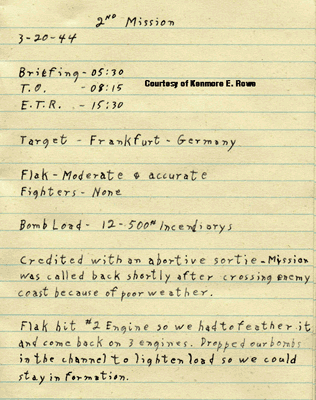 2ND Mission
3-20-44
Briefing - 05:30
Courtesy of Kenmore E. Rowe
T.O. - 08:15
E.T.R. - 15:30
Target - Frankfurt - Germany
Flak - Moderate & accurate
Fighters - None
Bomb Load - 12-500# Incendiarys
Credited with an abortive sortie - Mission
was called back shortly after crossing enemy
coast because of poor weather.
Flak hit #2 Engine so we had to feather it
and come back on 3 engines. Dropped our bombs
in the channel to lighten load so we could
stay in formation.